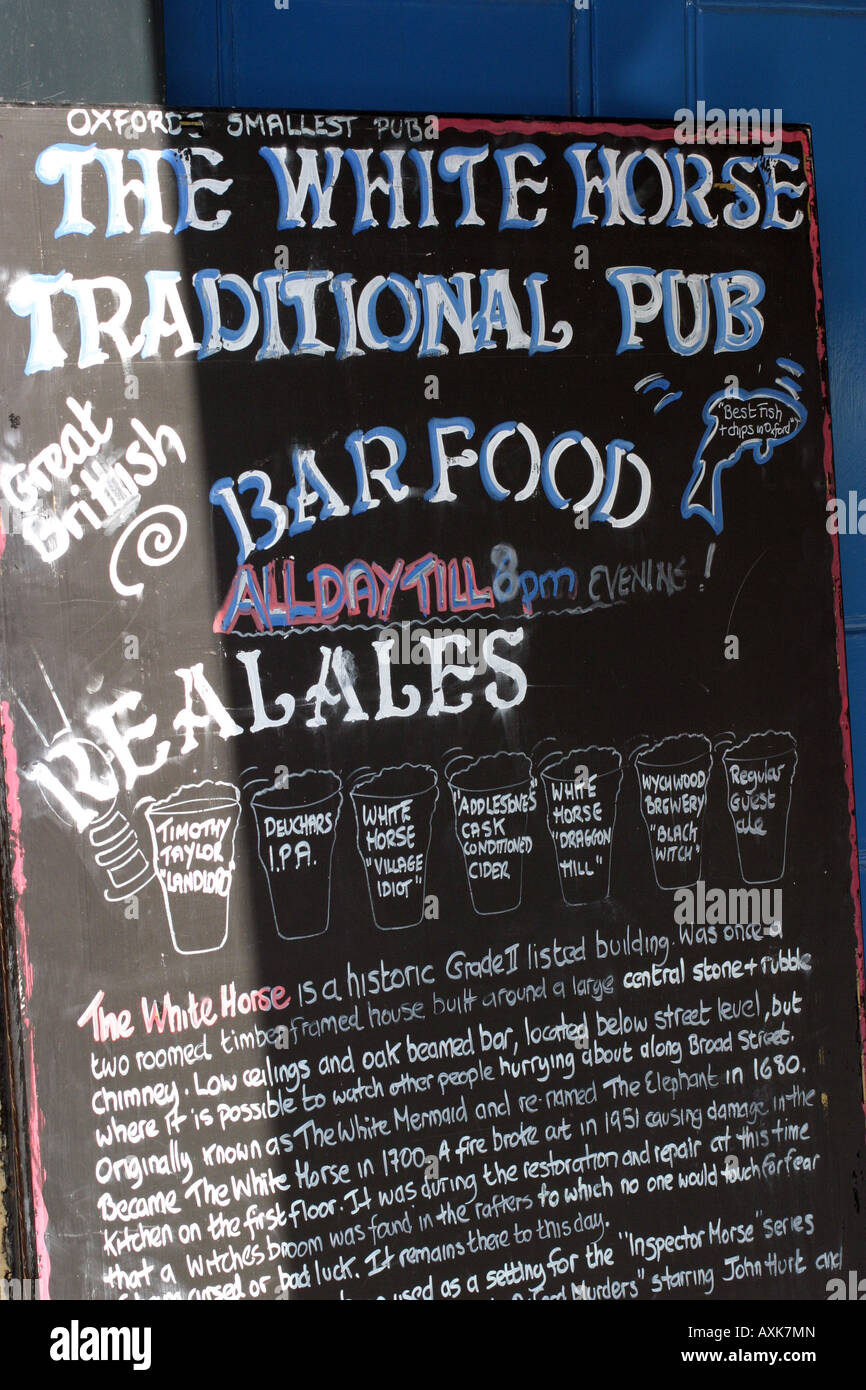 OXFORDS SMALLEST PUB
THE WHITE HORSE
TRADITIONAL PUB
Great
British
BAR FOOD
"Best Fish
+ chips in Oxford"
ALL DAY TILL 8pm EVENING!
REAL ALES
TIMOTHY
TAYLOR
"LANDLORD"
DEUCHARS
I.P.A.
WHITE
HORSE
"VILLAGE
IDIOT"
"ADDLESTONE'S
CASK
CONDITIONED
CIDER
WHITE
HORSE
"DRAGGON
HILL"
WYCHWOOD
BREWERY
"BLACK
WITCH"
Regular
Guest
ale
The White Horse is a historic Grade II listed building. Was once a
two roomed timber framed house built around a large central stone + rubble
chimney. Low ceilings and oak beamed bar, located below street level, but
where it is possible to watch other people hurrying about along Broad Street.
Originally known as The White Mermaid and re-named The Elephant in 1680.
Became The White Horse in 1700. A fire broke out in 1951 causing damage in the
kitchen on the first floor. It was during the restoration and repair at this time
that a witches broom was found in the rafters to which no one would touch for fear
cursed or bad luck. It remains there to this day.
used as a setting for the "Inspector Morse" series
Murders" starring John Hurt and
alamy
Image ID: AXK7MN
www.alamy.com